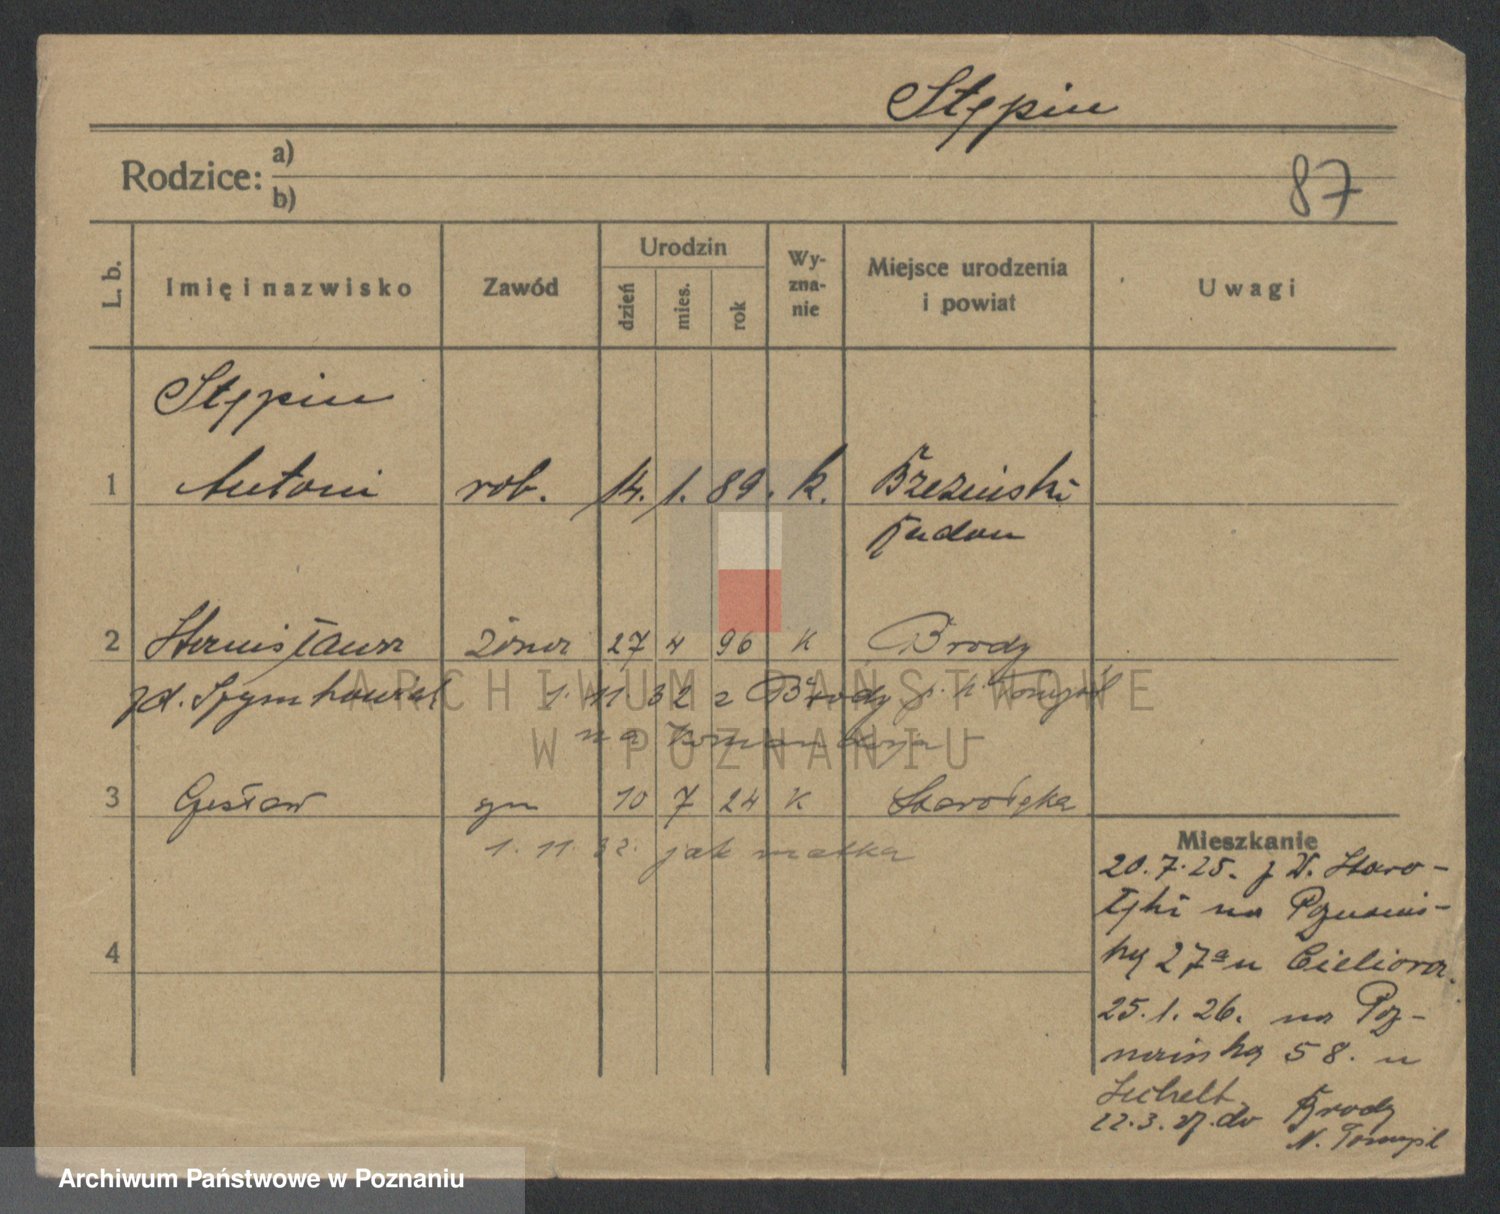 Stępin
Rodzice: a)
b)
87
L. b.
Imię i nazwisko
Zawód
Urodzin
dzień
mies.
rok
Wy-
zna-
nie
Miejsce urodzenia
i powiat
Uwagi
Stępin
1 Antoni rob. 14. 1. 89. k. Brzeziński
2 Stanisława żona 27 4 96 k Brody
1. 11. 32 z Brody p. N. Tomyśl
na
3 Czesław syn 10 7 24 k Starołęka
1. 11. 32. jak matka
4
Mieszkanie
20.7.25. z W. Staro-
łęki na Poznańs-
ką 27a u
25.1.26. na Poz-
nańską 58. u
22.3. do Brody
N. Tomyśl
ARCHIWUM PAŃSTWOWE
W POZNANIU
Archiwum Państwowe w Poznaniu